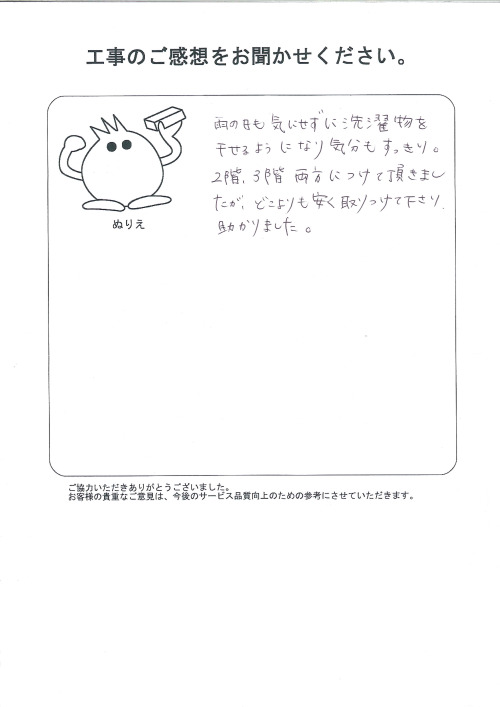 工事のご感想をお聞かせください。
雨の日も気にせずに洗濯物を
干せるようになり気分もすっきり。
2階、3階両方につけて頂きまし
たが、どこよりも安く取りつけて下さり、
助かりました。
ぬりえ
ご協力いただきありがとうございました。
お客様の貴重なご意見は、今後のサービス品質向上のための参考にさせていただきます。